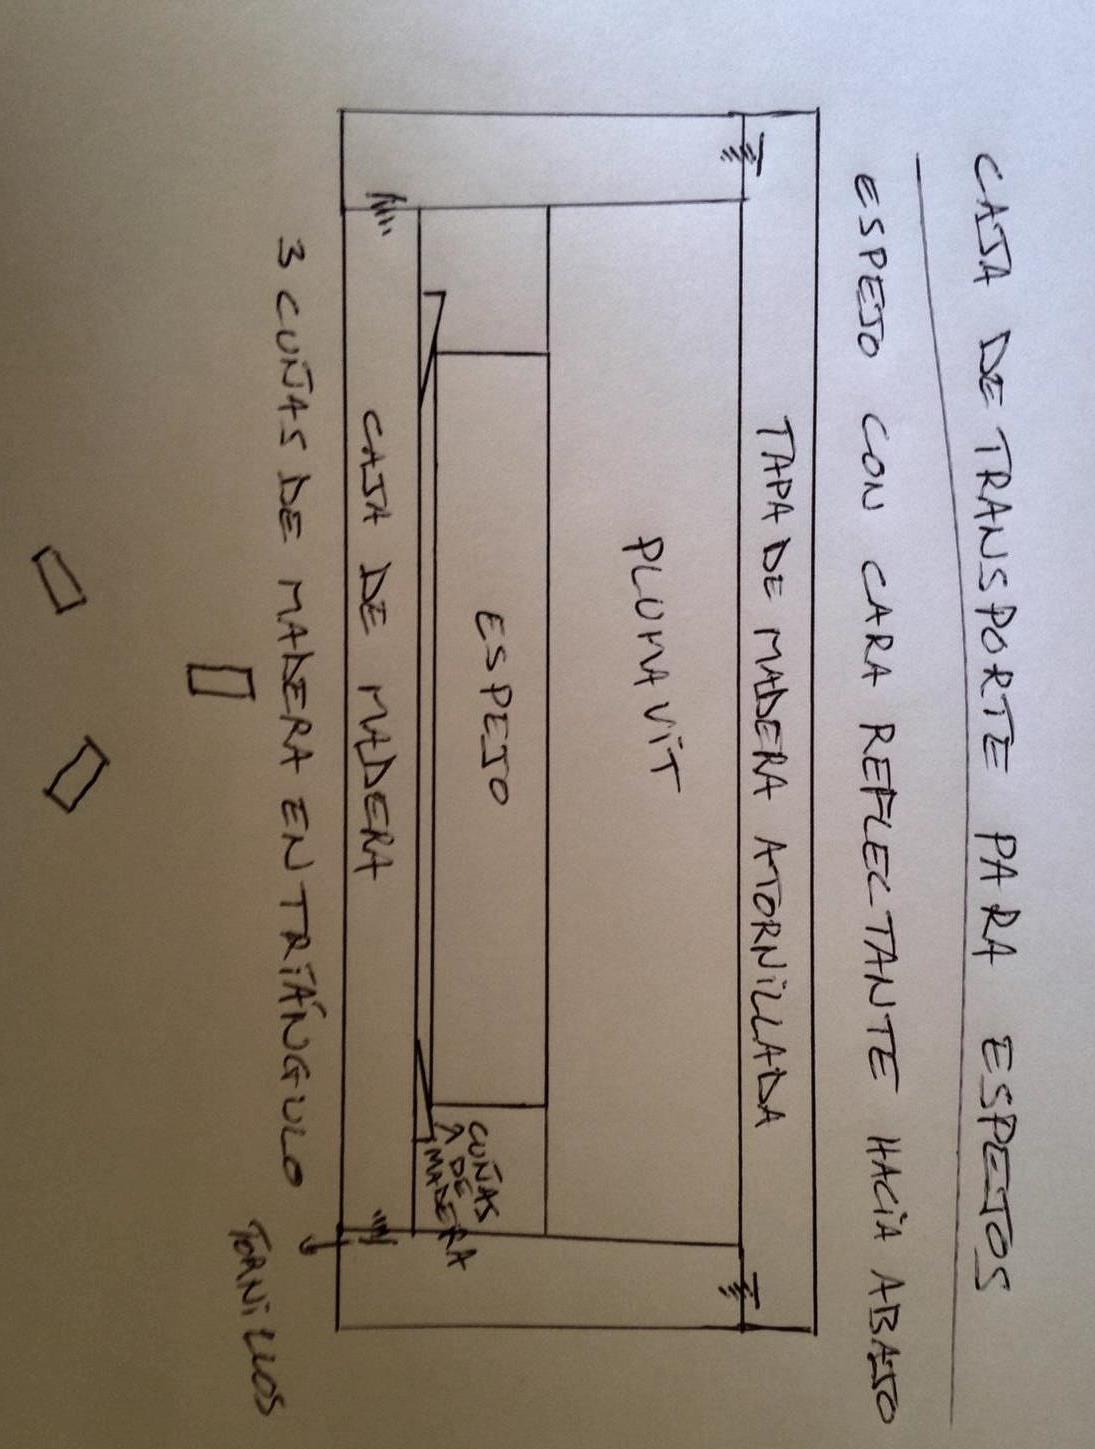 CAJA DE TRANSPORTE PARA ESPEJOS
ESPEJO CON CARA REFLECTANTE HACIA ABAJO
TAPA DE MADERA ATORNILLADA
PLUMAVIT
ESPEJO
CUÑAS
DE
MADERA
CAJA DE MADERA
3 CUÑAS DE MADERA EN TRIÁNGULO
TORNILLOS